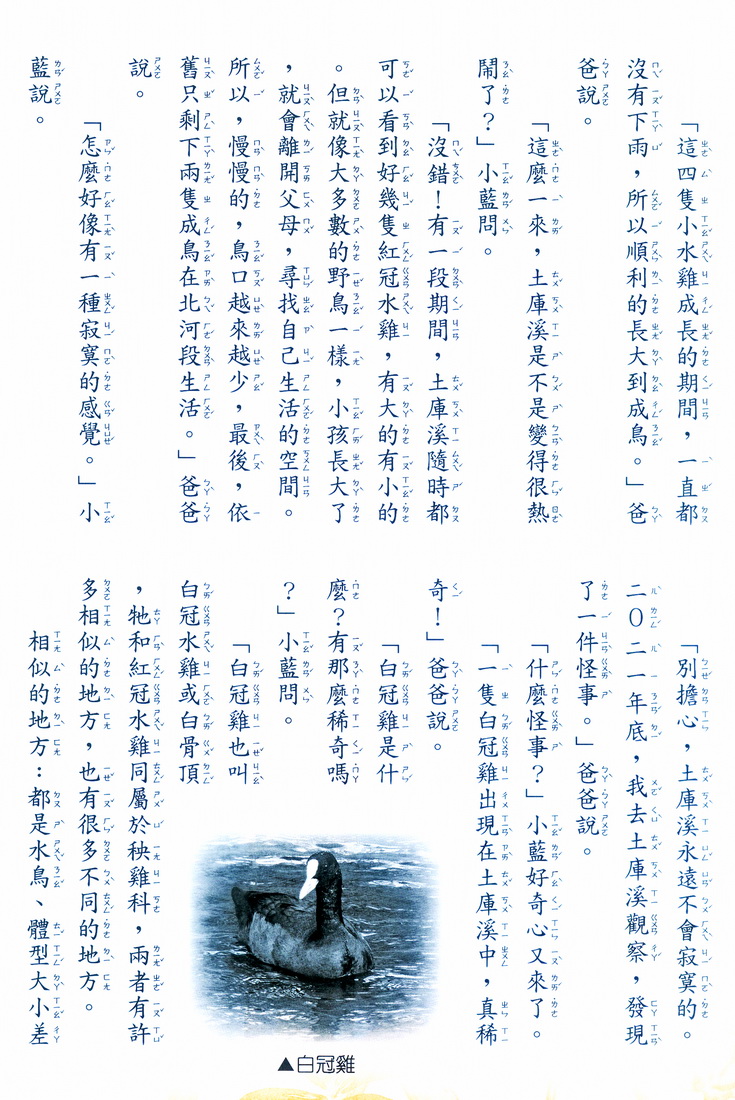 「這四隻小水雞成長的期間，一直都
沒有下雨，所以順利的長大到成鳥。」爸
爸說。
「這麼一來，土庫溪是不是變得很熱
鬧了？」小藍問。
「沒錯！有一段期間，土庫溪隨時都
可以看到好幾隻紅冠水雞，有大的有小的
。但就像大多數的野鳥一樣，小孩長大了
，就會離開父母，尋找自己生活的空間。
所以，慢慢的，鳥口越來越少，最後，依
舊只剩下兩隻成鳥在北河段生活。」爸爸
說。
「怎麼好像有一種寂寞的感覺。」小
藍說。
「別擔心，土庫溪永遠不會寂寞的。
二０二一年底，我去土庫溪觀察，發現
了一件怪事。」爸爸說。
「什麼怪事？」小藍好奇心又來了。
「一隻白冠雞出現在土庫溪中，真稀
奇！」爸爸說。
「白冠雞是什
麼？有那麼稀奇嗎
？」小藍問。
「白冠雞也叫
白冠水雞或白骨頂
，牠和紅冠水雞同屬於秧雞科，兩者有許
多相似的地方，也有很多不同的地方。
相似的地方：都是水鳥、體型大小差
▲白冠雞